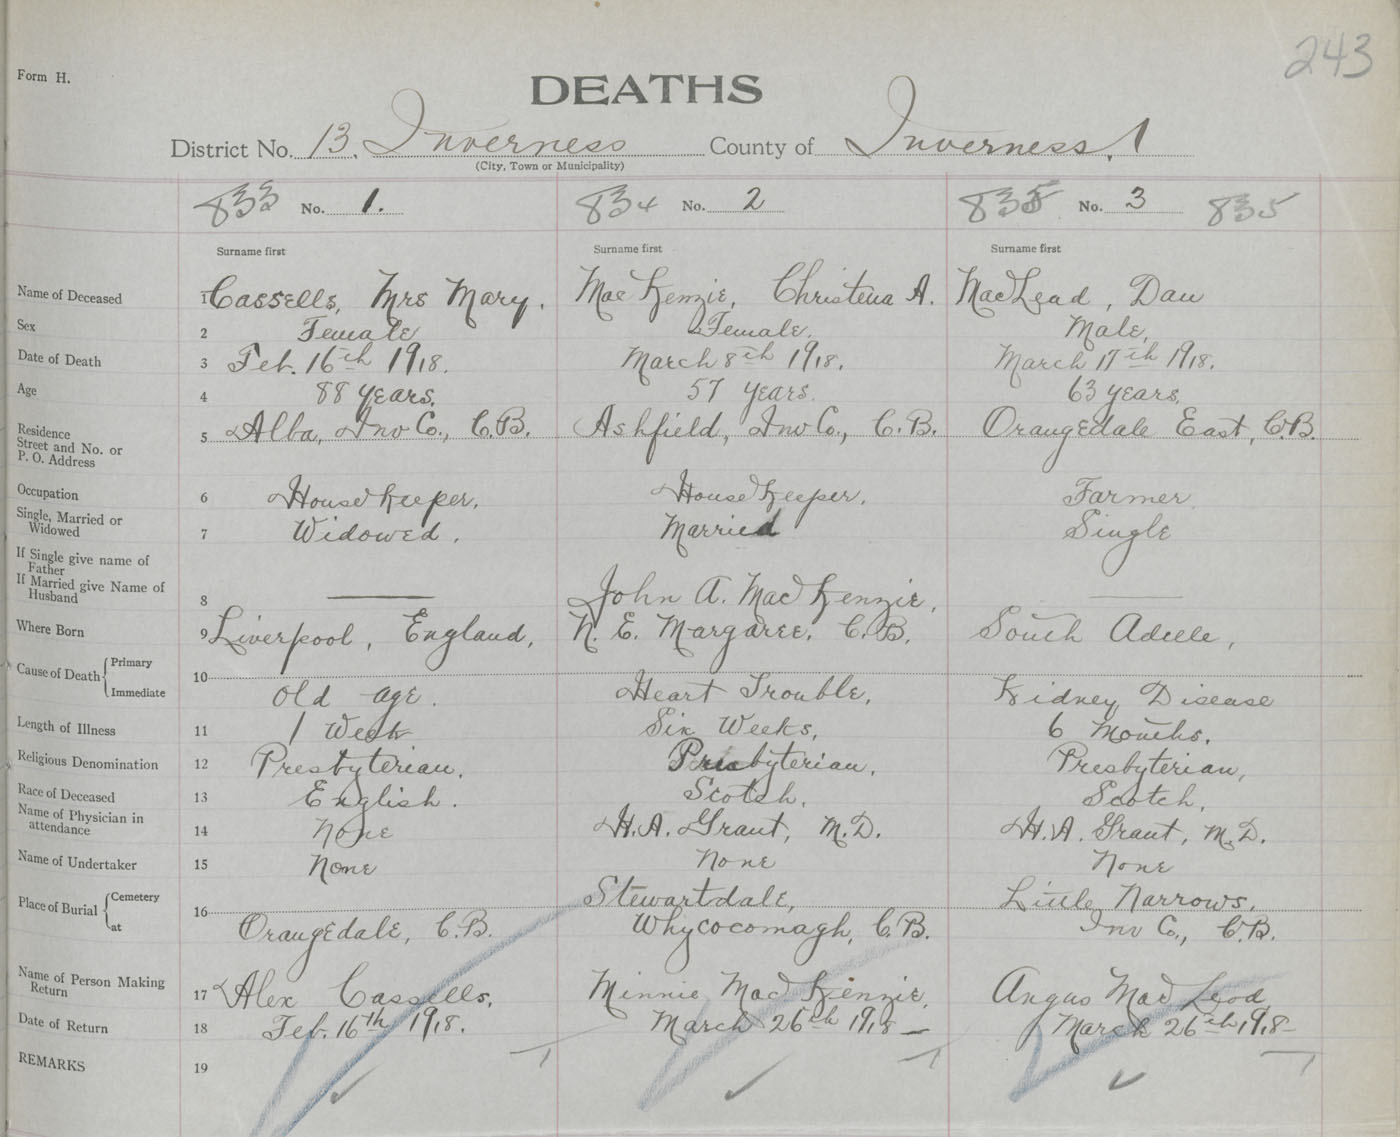 243
Form H.
DEATHS
District No. 13. Inverness County of Inverness.
(City, Town or Municipality)
833 No. 1. 834 No. 2 835 No. 3 835
Surname first Surname first Surname first
Name of Deceased 1 Cassells, Mrs Mary. MacKenzie, Christena A. MacLead, Dan
Sex 2 Female Female. Male,
Date of Death 3 Feb. 16th 1918. March 8th 1918. March 17th 1918.
Age 4 88 years. 57 years. 63 years.
Residence
Street and No. or
P. O. Address 5 Alba, Inv Co., C.B. Ashfield, Inv Co., C.B. Orangedale East, C.B.
Occupation 6 Housekeeper. Housekeeper. Farmer
Single, Married or
Widowed 7 Widowed. Married Single
If Single give name of
Father
If Married give Name of
Husband 8 — John A. MacKenzie, —
Where Born 9 Liverpool, England, N. E. Margaree. C.B. South
Cause of Death Primary 10
Immediate Old age. Heart Trouble, Kidney Disease
Length of Illness 11 1 Week Six Weeks, 6 Months.
Religious Denomination 12 Presbyterian. Presbyterian, Presbyterian,
Race of Deceased 13 English. Scotch, Scotch,
Name of Physician in
attendance 14 None H.A. Grant, M.D. H.A. Grant, M.D.
Name of Undertaker 15 None None None
Place of Burial Cemetery 16 Stewartdale, Little Narrows,
at Orangedale, C.B. Whycocomagh, C.B. Inv Co., C.B.
Name of Person Making
Return 17 Alex Cassells, Minnie MacKenzie, Angus MacLeod,
Date of Return 18 Feb. 16th 1918. March 26th 1918 — March 26th 1918 —
REMARKS 19